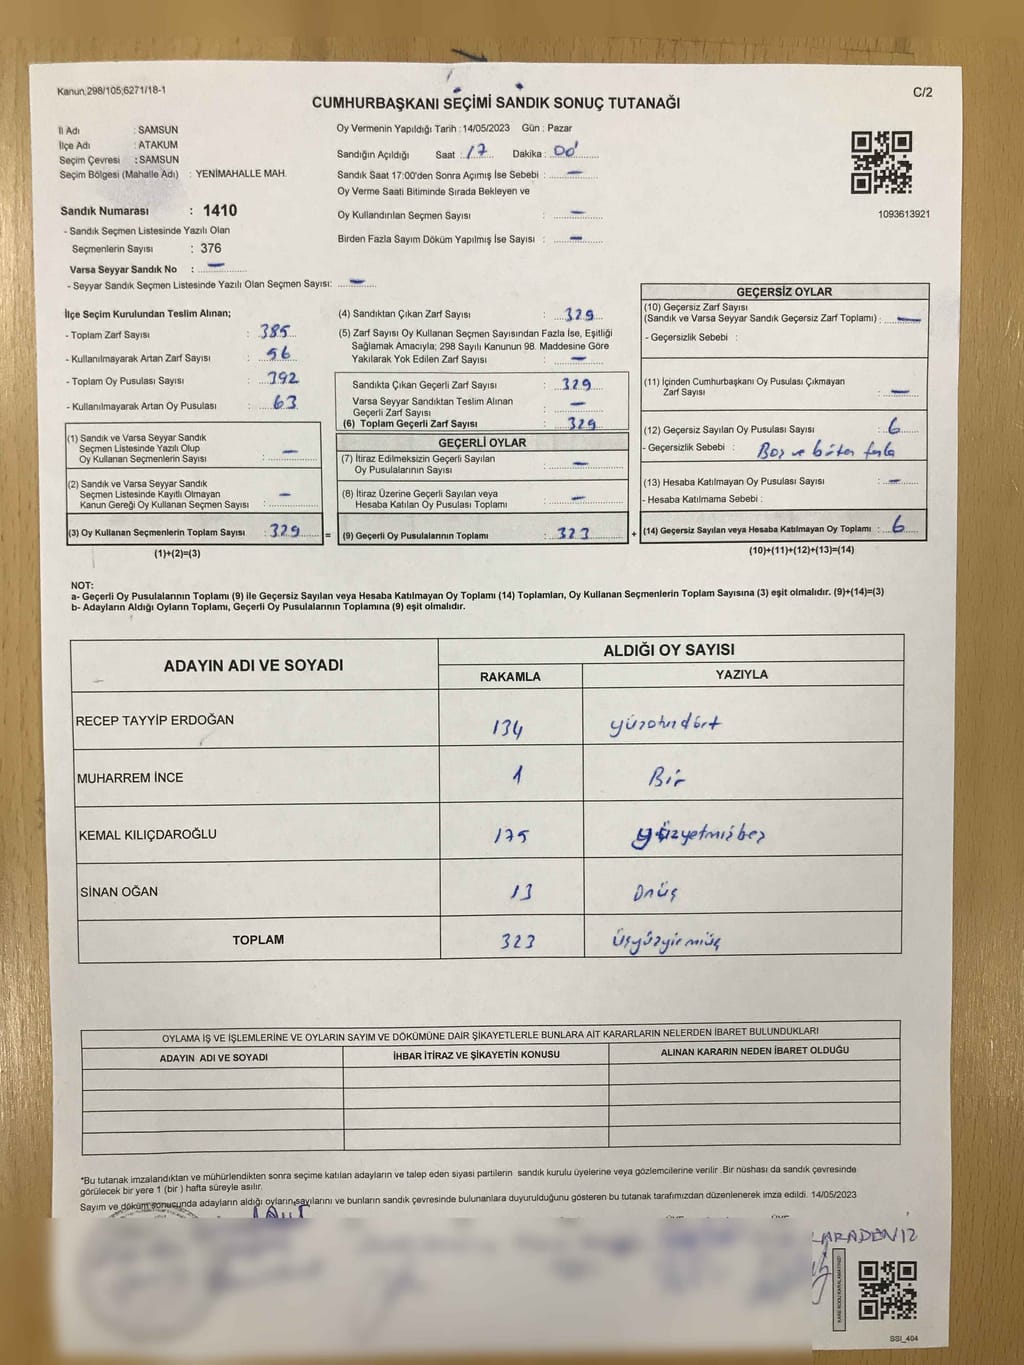 Kanun.298/105;6271/18-1
C/2
CUMHURBAŞKANI SEÇİMİ SANDIK SONUÇ TUTANAĞI
İl Adı : SAMSUN
İlçe Adı : ATAKUM
Seçim Çevresi : SAMSUN
Seçim Bölgesi (Mahalle Adı) : YENİMAHALLE MAH.
Sandık Numarası : 1410
- Sandık Seçmen Listesinde Yazılı Olan
Seçmenlerin Sayısı : 376
Varsa Seyyar Sandık No : —
- Seyyar Sandık Seçmen Listesinde Yazılı Olan Seçmen Sayısı: —
Oy Vermenin Yapıldığı Tarih : 14/05/2023 Gün : Pazar
Sandığın Açıldığı Saat : 17 Dakika : 00
Sandık Saat 17:00'den Sonra Açımış İse Sebebi : —
Oy Verme Saati Bitiminde Sırada Bekleyen ve
Oy Kullandırılan Seçmen Sayısı : —
Birden Fazla Sayım Döküm Yapılmış İse Sayısı : —
1093613921
İlçe Seçim Kurulundan Teslim Alınan;
- Toplam Zarf Sayısı : 385
- Kullanılmayarak Artan Zarf Sayısı : 56
- Toplam Oy Pusulası Sayısı : 392
- Kullanılmayarak Artan Oy Pusulası : 63
(1) Sandık ve Varsa Seyyar Sandık
Seçmen Listesinde Yazılı Olup
Oy Kullanan Seçmenlerin Sayısı : —
(2) Sandık ve Varsa Seyyar Sandık
Seçmen Listesinde Kayıtlı Olmayan
Kanun Gereği Oy Kullanan Seçmen Sayısı : —
(3) Oy Kullanan Seçmenlerin Toplam Sayısı : 329
(1)+(2)=(3)
(4) Sandıktan Çıkan Zarf Sayısı : 329
(5) Zarf Sayısı Oy Kullanan Seçmen Sayısından Fazla İse, Eşitliği
Sağlamak Amacıyla; 298 Sayılı Kanunun 98. Maddesine Göre
Yakılarak Yok Edilen Zarf Sayısı : —
Sandıkta Çıkan Geçerli Zarf Sayısı : 329
Varsa Seyyar Sandıktan Teslim Alınan
Geçerli Zarf Sayısı : —
(6) Toplam Geçerli Zarf Sayısı : 329
GEÇERLİ OYLAR
(7) İtiraz Edilmeksizin Geçerli Sayılan
Oy Pusulalarının Sayısı : —
(8) İtiraz Üzerine Geçerli Sayılan veya
Hesaba Katılan Oy Pusulası Toplamı : —
= (9) Geçerli Oy Pusulalarının Toplamı : 323 +
GEÇERSİZ OYLAR
(10) Geçersiz Zarf Sayısı
(Sandık ve Varsa Seyyar Sandık Geçersiz Zarf Toplamı) : —
- Geçersizlik Sebebi :
(11) İçinden Cumhurbaşkanı Oy Pusulası Çıkmayan
Zarf Sayısı : —
(12) Geçersiz Sayılan Oy Pusulası Sayısı : 6
- Geçersizlik Sebebi : Boş ve birden fazla
(13) Hesaba Katılmayan Oy Pusulası Sayısı : —
- Hesaba Katılmama Sebebi :
(14) Geçersiz Sayılan veya Hesaba Katılmayan Oy Toplamı : 6
(10)+(11)+(12)+(13)=(14)
NOT:
a- Geçerli Oy Pusulalarının Toplamı (9) ile Geçersiz Sayılan veya Hesaba Katılmayan Oy Toplamı (14) Toplamları, Oy Kullanan Seçmenlerin Toplam Sayısına (3) eşit olmalıdır. (9)+(14)=(3)
b- Adayların Aldığı Oyların Toplamı, Geçerli Oy Pusulalarının Toplamına (9) eşit olmalıdır.
ADAYIN ADI VE SOYADI ALDIĞI OY SAYISI
RAKAMLA YAZIYLA
RECEP TAYYİP ERDOĞAN 134 yüzotuzdört
MUHARREM İNCE 1 Bir
KEMAL KILIÇDAROĞLU 175 yüzyetmişbeş
SİNAN OĞAN 13 Onüç
TOPLAM 323 üçyüzyirmiüç
OYLAMA İŞ VE İŞLEMLERİNE VE OYLARIN SAYIM VE DÖKÜMÜNE DAİR ŞİKAYETLERLE BUNLARA AİT KARARLARIN NELERDEN İBARET BULUNDUKLARI
ADAYIN ADI VE SOYADI İHBAR İTİRAZ VE ŞİKAYETİN KONUSU ALINAN KARARIN NEDEN İBARET OLDUĞU
*Bu tutanak imzalandıktan ve mühürlendikten sonra seçime katılan adayların ve talep eden siyasi partilerin sandık kurulu üyelerine veya gözlemcilerine verilir .Bir nüshası da sandık çevresinde
görülecek bir yere 1 (bir ) hafta süreyle asılır.
Sayım ve döküm sonucunda adayların aldığı oyların sayılarını ve bunların sandık çevresinde bulunanlara duyurulduğunu gösteren bu tutanak tarafımızdan düzenlenerek imza edildi. 14/05/2023
KARADENİZ
SSİ_404